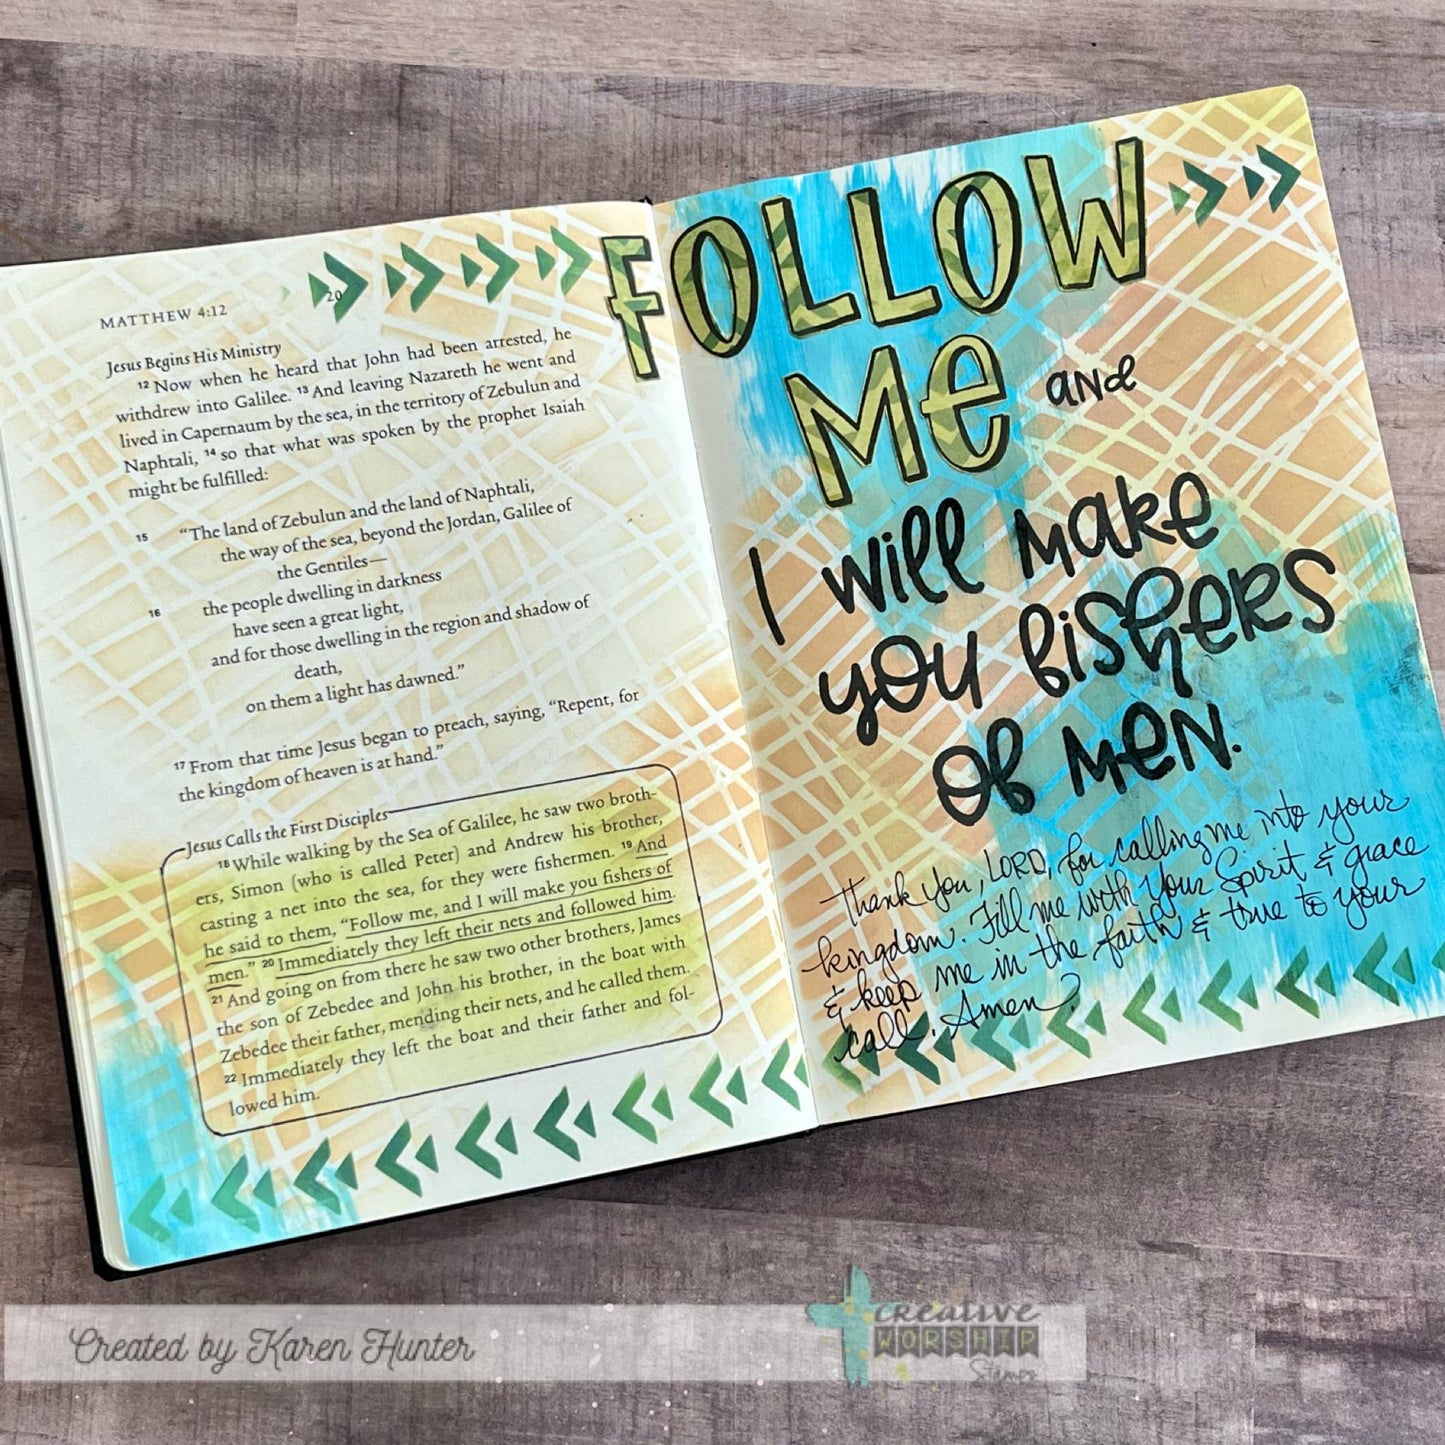 MATTHEW 4:12
20
Jesus Begins His Ministry
12 Now when he heard that John had been arrested, he
withdrew into Galilee. 13 And leaving Nazareth he went and
lived in Capernaum by the sea, in the territory of Zebulun and
Naphtali, 14 so that what was spoken by the prophet Isaiah
might be fulfilled:
15 “The land of Zebulun and the land of Naphtali,
the way of the sea, beyond the Jordan, Galilee of
the Gentiles—
16 the people dwelling in darkness
have seen a great light,
and for those dwelling in the region and shadow of
death,
on them a light has dawned.”
17 From that time Jesus began to preach, saying, “Repent, for
the kingdom of heaven is at hand.”
Jesus Calls the First Disciples
18 While walking by the Sea of Galilee, he saw two broth-
ers, Simon (who is called Peter) and Andrew his brother,
casting a net into the sea, for they were fishermen. 19 And
he said to them, “Follow me, and I will make you fishers of
men.” 20 Immediately they left their nets and followed him.
21 And going on from there he saw two other brothers, James
the son of Zebedee and John his brother, in the boat with
Zebedee their father, mending their nets, and he called them.
22 Immediately they left the boat and their father and fol-
lowed him.
FOLLOW
Me and
I will make
you fishers
of men.
Thank you, LORD, for calling me into your
kingdom. Fill me with your Spirit & grace
& keep me in the faith & true to your
call. Amen?
Created by Karen Hunter
creative
WORSHIP
Stamps